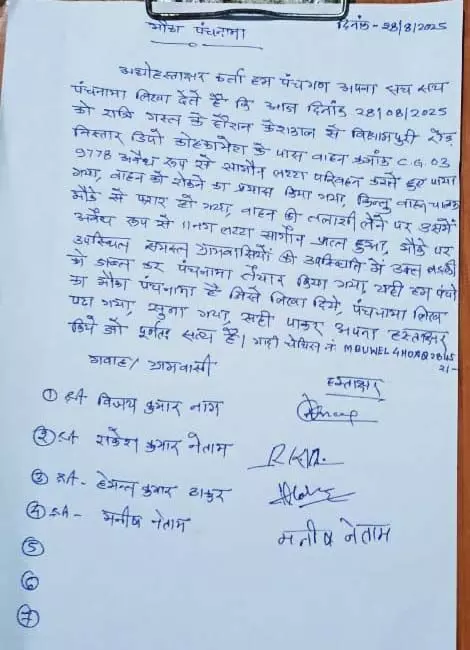 मौका पंचनामा
दिनांक- 28/8/2025
अधोहस्ताक्षर कर्ता हम पंचगण अपना सच सच
पंचनामा लिखा देते हैं कि आज दिनांक 28/08/2025
को रात्रि गस्त के दौरान केशकाल से विश्रामपुरी रोड़
निस्तार डिपो कोहकामेटा के पास वाहन क्रमांक C.G. 03
9778 अवैध रूप से सागौन लट्ठा परिवहन करते हुए पाया
गया, वाहन को रोकने का प्रयास किया गया, किन्तु वाहन चालक
मौके से फरार हो गया, वाहन की तलाशी लेने पर उसमें
अवैध रूप से 11 नग लट्ठा सागौन जप्त हुआ, मौके पर
उपस्थित समस्त ग्रामवासियों की उपस्थिति में उक्त लकड़ी
को जप्त कर पंचनामा तैयार किया गया, यही हम पंचो
का मौका पंचनामा है जिसे लिखा दिये, पंचनामा लिख
पढ़ा गया, सुना गया, सही पाकर अपना हस्ताक्षर
किये जो पूर्णतः सत्य है। गाड़ी चेचिस नं.
गवाह/ ग्रामवासी
हस्ताक्षर
① विजय कुमार नाग
② राकेश कुमार नेताम
③ हेमन्त कुमार ठाकुर
④ मनीष नेताम
मनीष नेताम
⑤
⑥
⑦